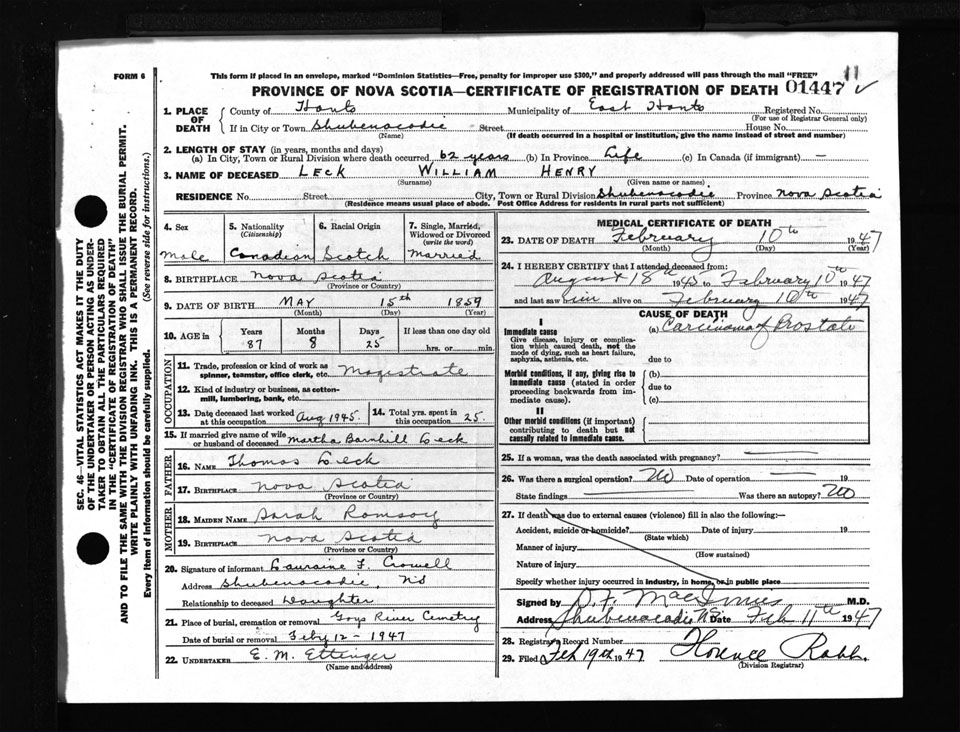 FORM 6
This form if placed in an envelope, marked "Dominion Statistics—Free, penalty for improper use $300," and properly addressed will pass through the mail "FREE"
11
PROVINCE OF NOVA SCOTIA—CERTIFICATE OF REGISTRATION OF DEATH 01447 ✓
1. PLACE OF DEATH
County of Hants Municipality of East Hants Registered No.
(For use of Registrar General only)
If in City or Town Shubenacadie Street House No.
(Name) (If death occurred in a hospital or institution, give the name instead of street and number)
2. LENGTH OF STAY (in years, months and days)
(a) In City, Town or Rural Division where death occurred 62 years (b) In Province Life (c) In Canada (if immigrant) —
3. NAME OF DECEASED LECK WILLIAM HENRY
(Surname) (Given name or names)
RESIDENCE No. Street City, Town or Rural Division Shubenacadie Province Nova Scotia
(Residence means usual place of abode. Post Office Address for residents in rural parts not sufficient)
4. Sex
Male
5. Nationality
(Citizenship)
Canadian
6. Racial Origin
Scotch
7. Single, Married,
Widowed or Divorced
(write the word)
Married
8. BIRTHPLACE Nova Scotia
(Province or Country)
9. DATE OF BIRTH MAY 15th 1859
(Month) (Day) (Year)
10. AGE in
Years Months Days If less than one day old
87 8 25 hrs. or min.
OCCUPATION
11. Trade, profession or kind of work as
spinner, teamster, office clerk, etc. Magistrate
12. Kind of industry or business, as cotton-
mill, lumbering, bank, etc.
13. Date deceased last worked
at this occupation Aug 1945.
14. Total yrs. spent in
this occupation 25.
15. If married give name of wife
or husband of deceased Martha Barnhill Leck
FATHER
16. NAME Thomas Leck
17. BIRTHPLACE Nova Scotia
(Province or Country)
MOTHER
18. MAIDEN NAME Sarah Romsoy
19. BIRTHPLACE Nova Scotia
(Province or Country)
20. Signature of informant Lauraine F. Crowell
Address Shubenacadie, NS
Relationship to deceased Daughter
21. Place of burial, cremation or removal Goys River Cemetry
Date of burial or removal Feby 12 - 1947
22. UNDERTAKER E. M. Ettinger
(Name and address)
MEDICAL CERTIFICATE OF DEATH
23. DATE OF DEATH February 10th 1947
(Month) (Day) (Year)
24. I HEREBY CERTIFY that I attended deceased from:
August 18th 1945 to February 10th 1947
and last saw him alive on February 10th 1947
CAUSE OF DEATH
I
Immediate cause
Give disease, injury or complica-
tion which caused death, not the
mode of dying, such as heart failure,
asphyxia, asthenia, etc.
(a) Carcinoma of Prostate
due to
Morbid conditions, if any, giving rise to
immediate cause (stated in order
proceeding backwards from im-
mediate cause).
(b)
due to
(c)
II
Other morbid conditions (if important)
contributing to death but not
causally related to immediate cause.
25. If a woman, was the death associated with pregnancy?
26. Was there a surgical operation? No Date of operation 19
State findings Was there an autopsy? No
27. If death was due to external causes (violence) fill in also the following:—
Accident, suicide or homicide? Date of injury 19
(State which)
Manner of injury
(How sustained)
Nature of injury
Specify whether injury occurred in industry, in home, or in public place
Signed by D. F. MacInnis M.D.
Address Shubenacadie N.S. Date Feb 11th 1947
28. Registrar's Record Number
29. Filed Feb 19th 1947 Florence Rabb.
(Division Registrar)
SEC. 46—VITAL STATISTICS ACT MAKES IT THE DUTY
OF THE UNDERTAKER OR PERSON ACTING AS UNDER-
TAKER TO OBTAIN ALL THE PARTICULARS REQUIRED
IN THE "CERTIFICATE OF REGISTRATION OF DEATH"
AND TO FILE THE SAME WITH THE DIVISION REGISTRAR WHO SHALL ISSUE THE BURIAL PERMIT.
WRITE PLAINLY WITH UNFADING INK. THIS IS A PERMANENT RECORD.
Every item of information should be carefully supplied. (See reverse side for instructions.)